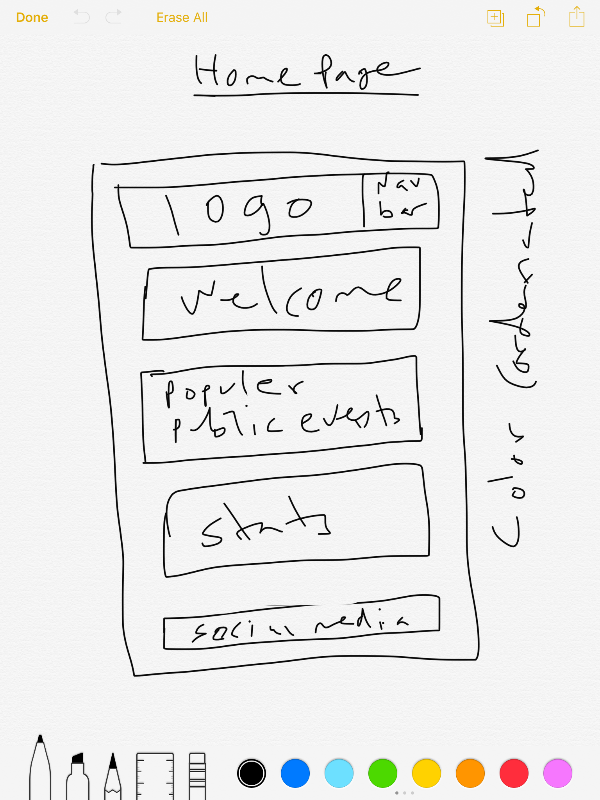 Done
Erase All
Home Page
logo
Nav
bar
Welcome
populer
public events
stats
social media
Color